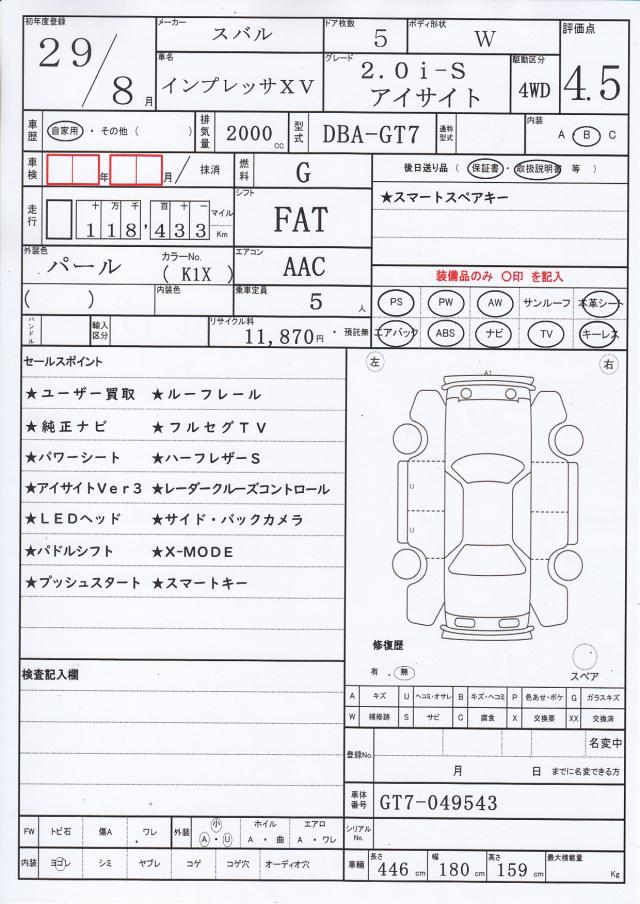 初年度登録 29/8月
メーカー スバル
ドア枚数 5
ボディ形状 W
評価点 4.5
車名 インプレッサXV
グレード 2.0i-S
アイサイト
駆動区分 4WD
車歴 自家用・その他（ ）
排気量 2000cc
型式 DBA-GT7
通称型式
内装 A B C
車検 年 月/抹消
燃料 G
後日送り品（保証書・取扱説明書 等）
★スマートスペアキー
走行 十万千百十一
118,433 マイル Km
シフト FAT
外装色 パール
カラーNo.（K1X）
エアコン AAC
装備品のみ 〇印 を記入
（ ）
内装色
乗車定員 5人
PS PW AW サンルーフ 本革シート
ハンドル
輸入区分
リサイクル料 11,870円・預託無
エアバック ABS ナビ TV キーレス
セールスポイント
左 右
A1
★ユーザー買取 ★ルーフレール
★純正ナビ ★フルセグTV
★パワーシート ★ハーフレザーS
★アイサイトVer3 ★レーダークルーズコントロール
★LEDヘッド ★サイド・バックカメラ
★パドルシフト ★X-MODE
★プッシュスタート ★スマートキー
U
U
修復歴
有 . 無
スペア
検査記入欄
A キズ U ヘコミ・オサレ B キズ・ヘコミ P 色あせ・ボケ G ガラスキズ
W 補修跡 S サビ C 腐食 X 交換要 XX 交換済
登録No. 名変中
月 日 までに名変できる方
車体番号 GT7-049543
FW トビ石 傷A ワレ
外装 小 A・U
ホイル A・曲
エアロ A・ワレ
シリアルNo.
内装 ヨゴレ シミ ヤブレ コゲ コゲ穴 オーディオ穴
車輛 長さ 446cm 幅 180cm 高さ 159cm 最大積載量 Kg